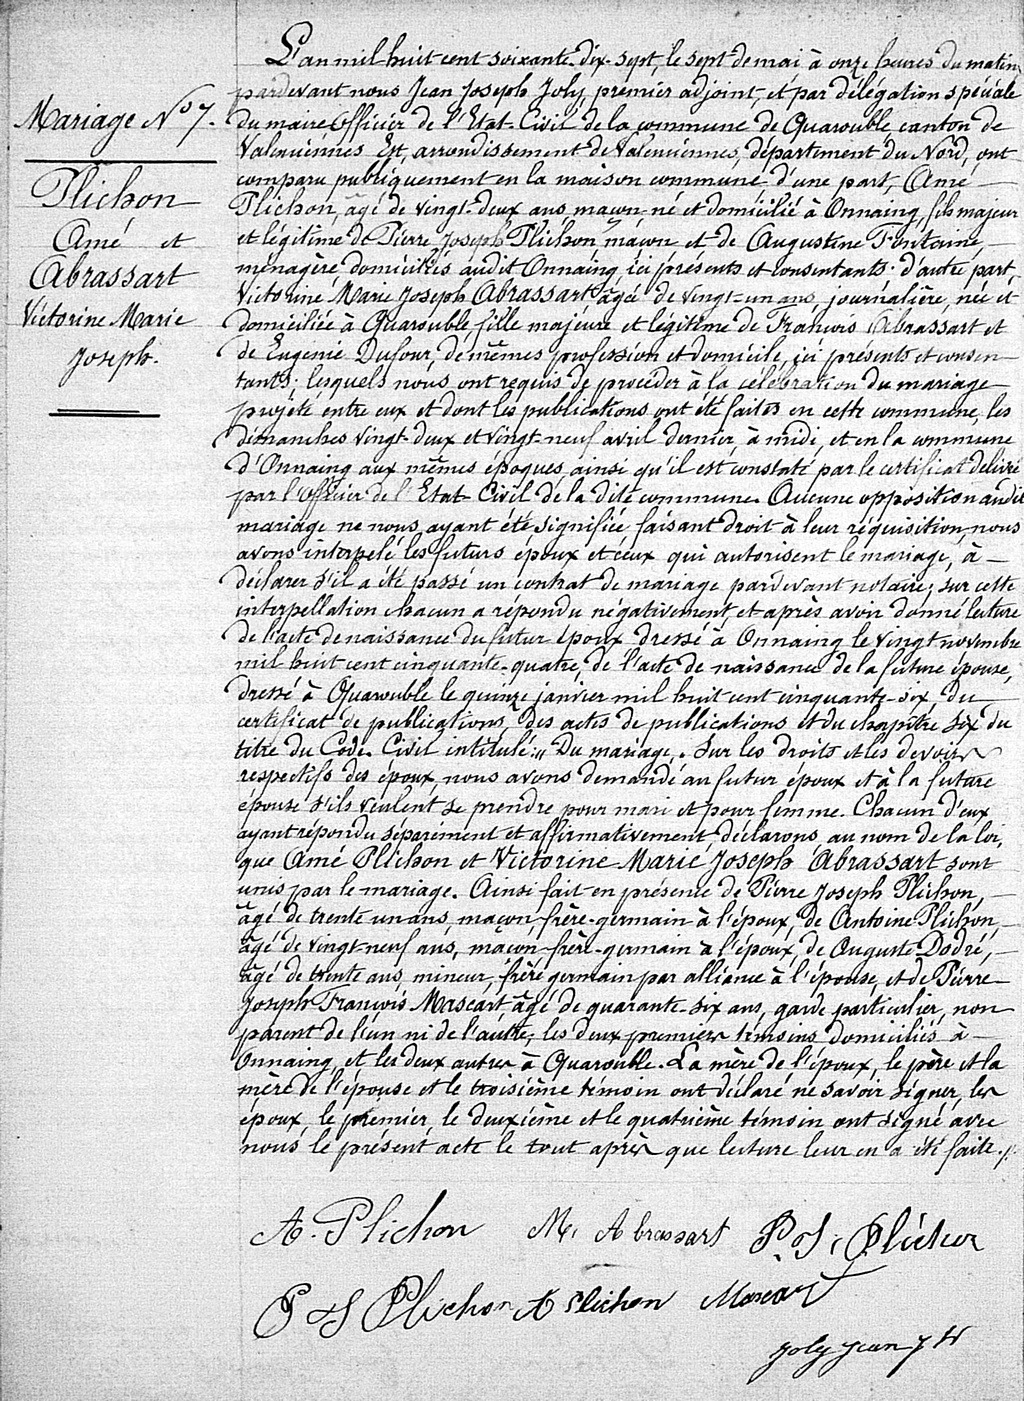 Mariage N° 7.
Plichon
Amé et
Abrassart
Victorine Marie
Joseph.
L'an mil huit cent soixante-dix-sept, le sept de mai à onze heures du matin
pardevant nous Jean Joseph Joly, premier adjoint, et par délégation spéciale
du maire Officier de l'Etat-Civil de la commune de Quarouble, canton de
Valenciennes Est, arrondissement de Valenciennes, département du Nord, ont
comparu publiquement en la maison commune d'une part, Amé
Plichon, âgé de vingt-deux ans maçon né et domicilié à Onnaing, fils majeur
et légitime de Pierre Joseph Plichon, maçon et de Augustine Fontaine,
ménagère domiciliés audit Onnaing ici présents et consentants. d'autre part,
Victorine Marie Joseph Abrassart âgée de vingt-un ans, journalière, née et
domiciliée à Quarouble fille majeure et légitime de François Abrassart et
de Eugénie Dufour, de mêmes profession et domicile, ici présents et consen-
tants; lesquels nous ont requis de procéder à la célébration du mariage
projeté entre eux et dont les publications ont été faites en cette commune, les
dimanches vingt-deux et vingt-neuf avril dernier, à midi, et en la commune
d'Onnaing aux mêmes époques, ainsi qu'il est constaté par le certificat délivré
par l'Officier de l'Etat-Civil de la dite commune. Aucune opposition audit
mariage ne nous ayant été signifiée faisant droit à leur réquisition, nous
avons interpelé les futurs époux et ceux qui autorisent le mariage, à
déclarer s'il a été passé un contrat de mariage pardevant notaire; sur cette
interpellation chacun a répondu négativement et après avoir donné lecture
de l'acte de naissance du futur époux dressé à Onnaing le vingt novembre
mil huit cent cinquante-quatre, de l'acte de naissance de la future épouse,
dressé à Quarouble le quinze janvier mil huit cent cinquante-six, du
certificat de publications, des actes de publications et du chapitre six du
titre du Code Civil intitulé: " Du mariage. Sur les droits et les devoirs
respectifs des époux, nous avons demandé au futur époux et à la future
épouse s'ils veulent se prendre pour mari et pour femme. Chacun d'eux
ayant répondu séparément et affirmativement, déclarons au nom de la loi,
que Amé Plichon et Victorine Marie Joseph Abrassart sont
unis par le mariage. Ainsi fait en présence de Pierre Joseph Plichon,
âgé de trente un ans, maçon, frère-germain à l'époux, de Antoine Plichon,
âgé de vingt-neuf ans, maçon-frère-germain à l'époux, de Auguste Dodré,
âgé de trente ans, mineur, frère germain par alliance à l'épouse, et de Pierre
Joseph François Mascart, âgé de quarante-six ans, garde particulier, non
parent de l'un ni de l'autre, les deux premiers témoins domiciliés à
Onnaing, et les deux autres à Quarouble. La mère de l'époux, le père et la
mère de l'épouse et le troisième témoin ont déclaré ne savoir signer, les
époux, le premier, le deuxième et le quatrième témoin ont signé avec
nous le présent acte le tout après que lecture leur en a été faite./.
A. Plichon M. Abrassart P. J. Plichon
P J Plichon A Plichon Mascart
Joly Jean J H